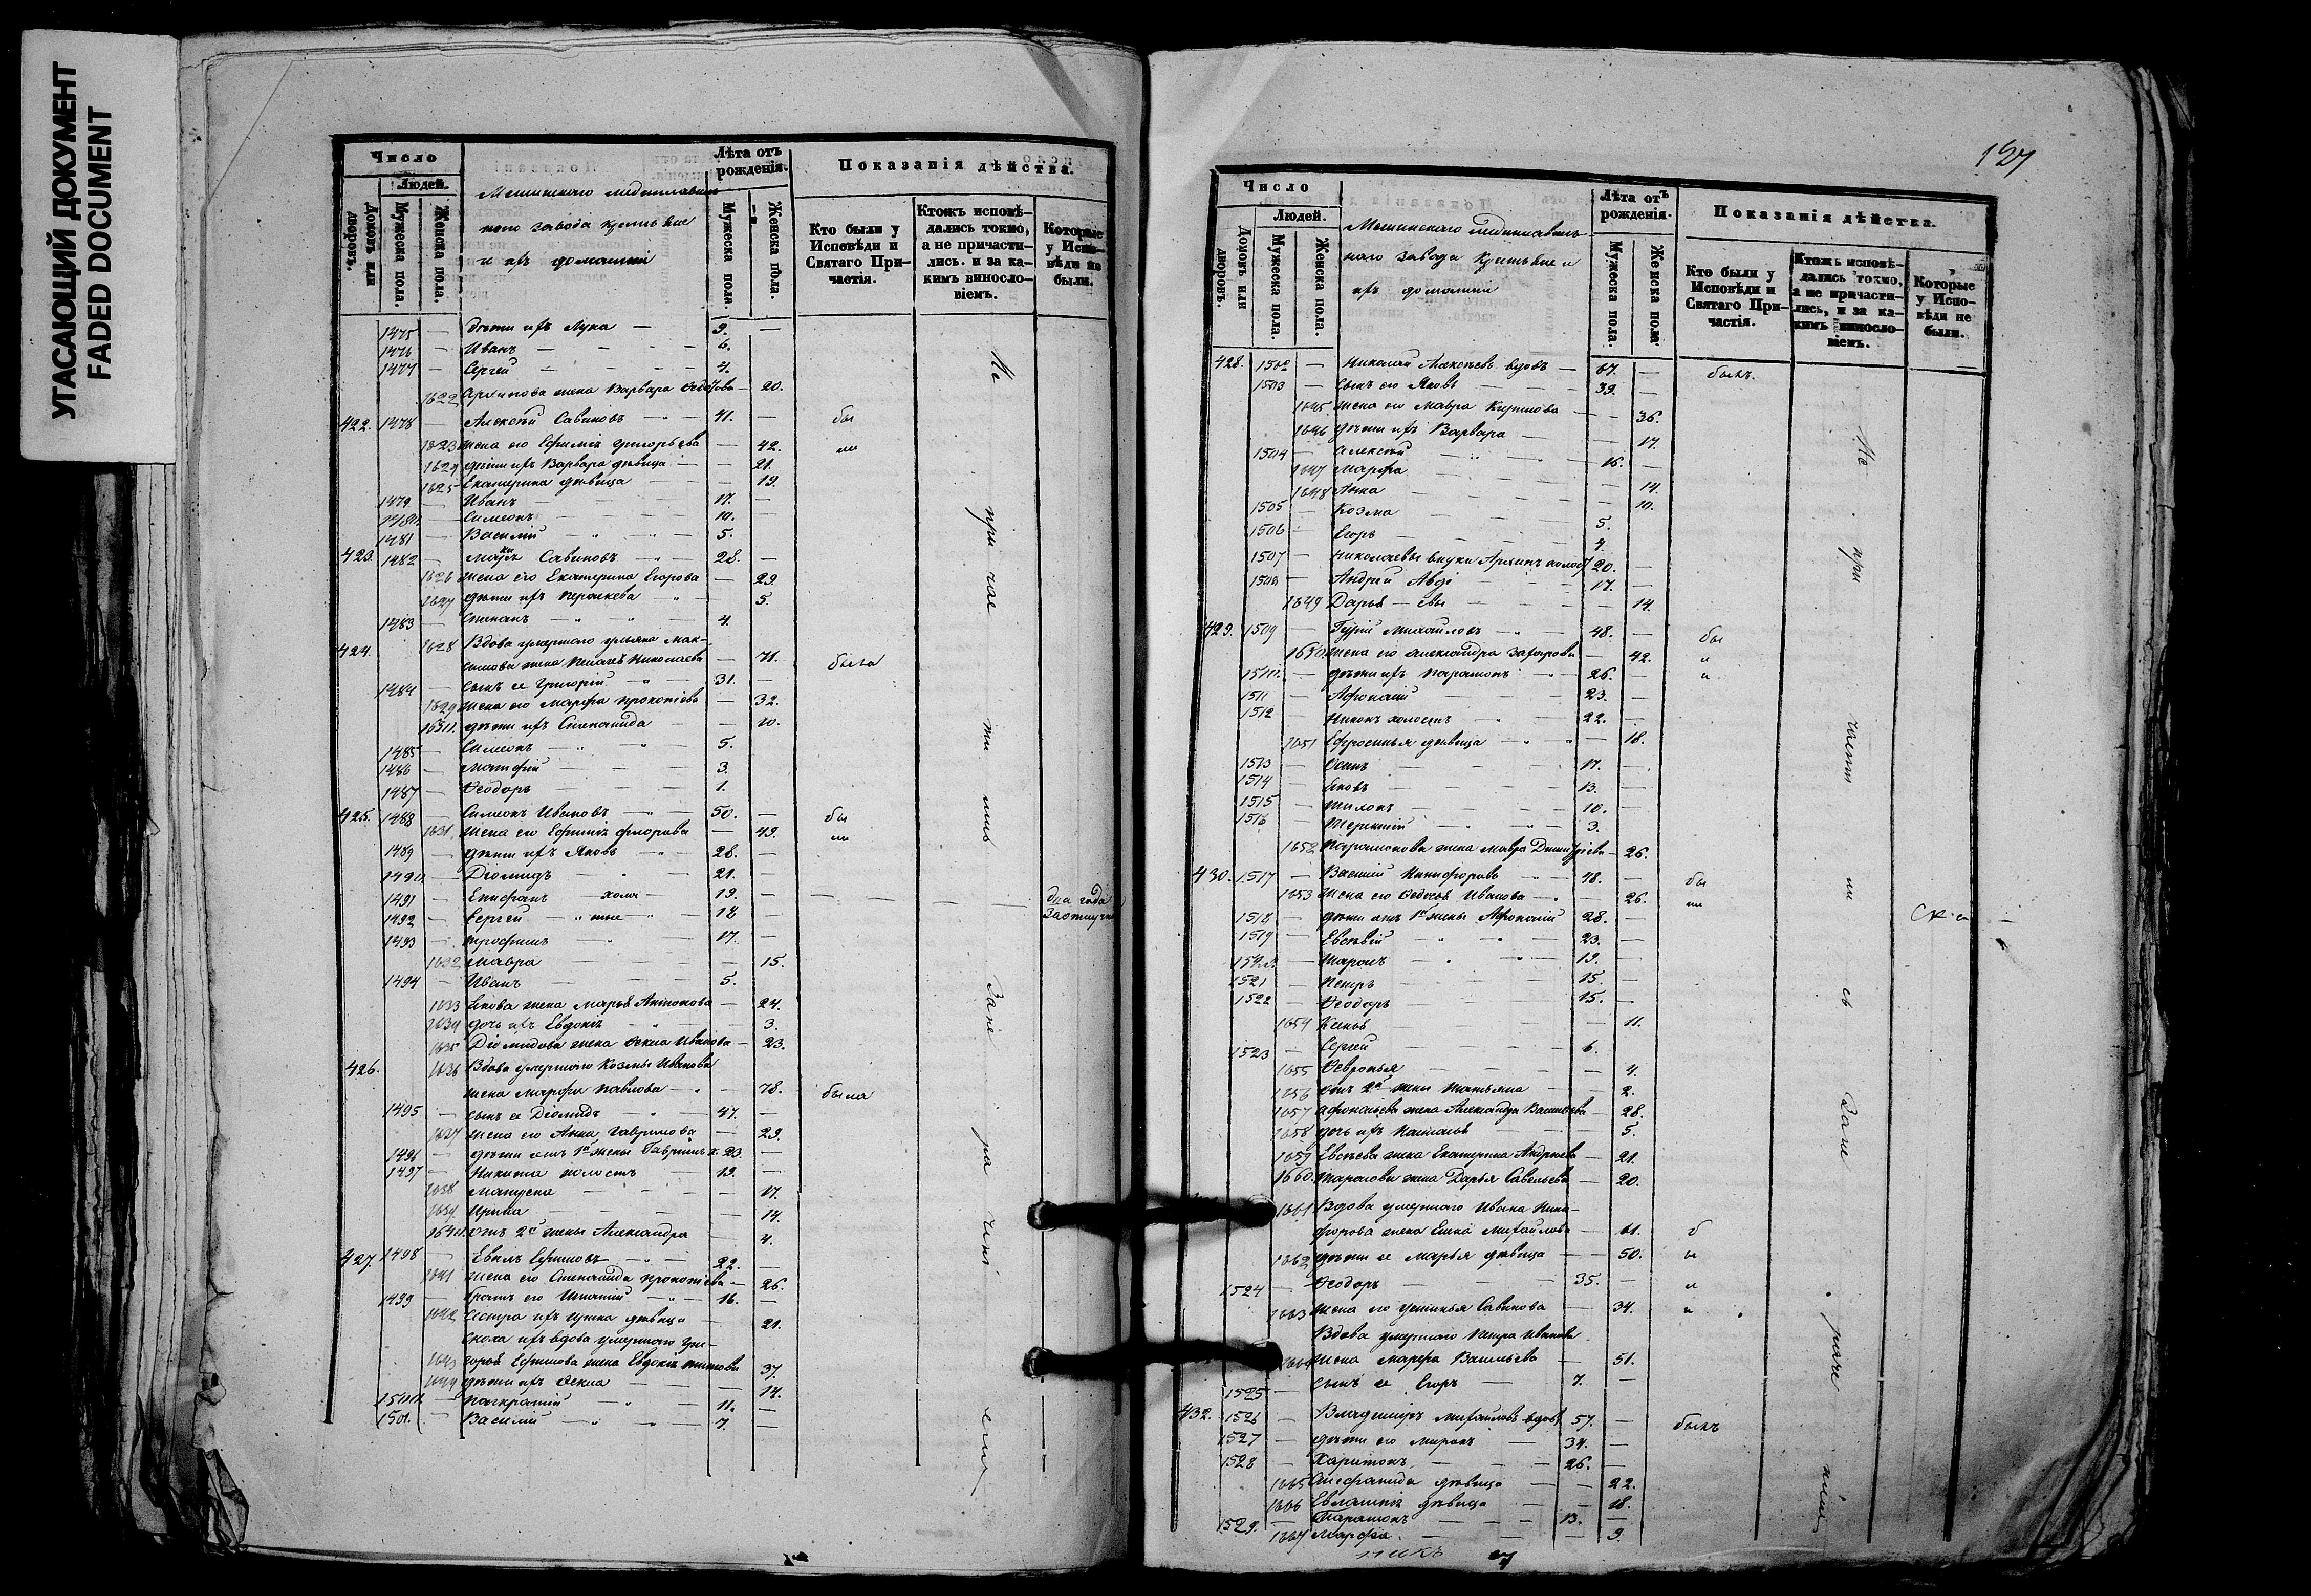 УГАСАЮЩИЙ ДОКУМЕНТ
FADED DOCUMENT
Число
Людей.
Домовъ или дворовъ.
Мужеска пола.
Женска пола.
Лѣта отъ рожденія.
Мужеска пола.
Женска пола.
Показанія дѣйства.
Кто были у Исповѣди и Святаго Причастія.
Ктожъ исповѣдались токмо, а не причастились. и за какимъ винословіемъ.
Которые у Исповѣди не были.
наго завода
и ихъ домашніи
1475 — дѣти ихъ Лука — 9. —
1476 — Иванъ — 6.
1477 — Сергей — 4.
1622 Архипова жена Варвара Федотова — 20.
422. 1478 — Алексѣй Савиновъ — 41. — бы
1623 жена его Ефимія Григорьева — 42. ли
1624 дѣти ихъ Варвара дѣвица — 21.
1625 Екатерина дѣвица — 19.
1479 — Иванъ — 17. —
1480 — Симеонъ — 10. —
1481 — Василій — 5. —
423. 1482 — Савиновъ — 28. —
1626 жена его Екатерина Егорова — 29.
1627 дѣти ихъ — 5.
1483 — Степанъ — 4.
424. 1628 Вдова умершаго Ульяна Мак-
симова жена Николаева — 71. была
1484 — сынъ ее Григорій — 31. —
1629 жена его Марфа Прокопіева — 32.
1630 дѣти ихъ Степанида — 10.
1485 — Симеонъ — 5.
1486 — Матфій — 3.
1487 — Феодоръ — 1.
425. 1488 — Симеонъ Ивановъ — 50. — бы
1631 жена его Ефимія Флорова — 49. ли
1489 — дѣти ихъ Яковъ — 28. —
1490 — Діомидъ — 21. —
1491 — Епифанъ холо — 19. — два года
1492 — Сергей — тые — 18 —
1493 — Трофимъ — 17. —
1632 Мавра — 15.
1494 — Иванъ — 5.
1633 Якова жена Марья Антонова — 24.
1634 дочь ихъ Евдокія — 3.
1635 Діомидова жена Фекла Иванова — 23.
426. 1636 Вдова умершаго Козьмы Иванова
жена Марфа Павлова — 78. была
1495 — сынъ ее Діомидъ — 47. —
1637 жена его Анна Гаврилова — 29.
1496 — дѣти отъ 1й жены Гавріилъ х. 23. —
1497 — Никита холостъ 19. —
1638 — 17.
1639 Ирина — 14.
1640 отъ 2й жены Александра — 4.
427. 1498 — Ефимовъ — 22. —
1641 жена его Степанида Прокопіева — 26.
1499 — братъ его Игнатій — 16. —
1642 сестра ихъ дѣвица — 21.
сноха ихъ вдова умершаго Гри-
1643 горья Ефимова жена Евдокія Титова 37.
1644 дѣти ихъ Фекла — 14.
1500 — Панкратій — 11. —
1501. — Василій — 7. —
127
Число
Людей.
Домовъ или дворовъ.
Мужеска пола.
Женска пола.
Лѣта отъ рожденія.
Мужеска пола.
Женска пола.
Показанія дѣйства.
Кто были у Исповѣди и Святаго Причастія.
Ктожъ исповѣдались токмо, а не причастились, и за какимъ винословіемъ.
Которые у Исповѣди не были.
наго завода
ихъ домашніи
428. 1502 — Николай Алексѣевъ вдовъ — 67. — былъ.
1503 — сынъ его Яковъ — 39. —
1645 жена его Мавра Кирилова — 36.
1646 дѣти ихъ Варвара — 17.
1504 — Алексѣй — 16. —
1647 Марфа — 14.
1648 Анна — 10.
1505 — Козма — 5.
1506 — Егоръ — 4.
1507 — Николаевы внуки Архипъ холост 20. —
1508 — Андрей Авдѣ 17. —
1649 Дарья — евы — 14.
429. 1509 — Гурій Михайловъ — 48. — бы
1650 жена его Александра Захарова — 42. л
1510 — дѣти ихъ Парамонъ — 26. — и
1511 — Афонасій 23. —
1512 — Никонъ холостъ — 22. —
1651 Ефросинья дѣвица — 18.
1513 — Осипъ — 17. —
1514 — Яковъ — 13. —
1515 — Филонъ — 10. —
1516 — Терентій — 3.
1652 Парамонова жена Мавра Дмитріева — 26.
430. 1517 — Василій Никифоровъ — 48. — бы
1653 жена его Федосья Иванова — 26. ли
1518 — дѣти отъ 1й жены Афонасій 28. —
1519 — Евсѣвій — 23. —
1520 — Тарасъ — 19. —
1521 — Петръ — 15. —
1522 — Феодоръ — 15. —
1654 Ксенья — 11.
1523 — Сергей — 6.
1655 Февронья — 4.
1656 отъ 2й жены Татьяна — 2.
1657 Афонасіева жена Александра Васильева — 28.
1658 дочь ихъ Наталья — 5.
1659 Евсѣева жена Екатерина Андреева — 21.
1660. Тарасова жена Дарья Савельева — 20.
1661 Вдова умершаго Ивана Ники-
форова жена Елена Михайлова — 61. б
1662 дѣти ее Марья дѣвица — 30. ы
1524 — Феодоръ — 35. — л
1663 жена его Устинья Савинова — 34. и
Вдова умершаго Петра Иванова
1664 жена Марфа Васильева — 51.
1525 — сынъ ее Егоръ — 7. —
432. 1526 — Владимиръ Михайловъ вдов 57. — былъ
1527 — дѣти его Миронъ — 34. —
1528 — Харитонъ — 26. —
1665 Степанида дѣвица — 22.
1666 Евлампія дѣвица — 18.
1529. — Парамонъ — 13. —
1667 Марфа — 9.